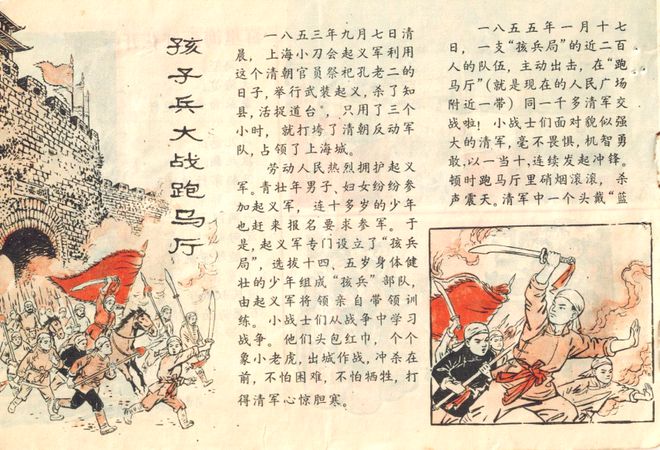 孩子兵大战跑马厅
一八五三年九月七日清
晨，上海小刀会起义军利用
这个清朝官员祭祀孔老二的
日子，举行武装起义，杀了知
县，活捉道台，只用了三个
小时，就打垮了清朝反动军
队，占领了上海城。
劳动人民热烈拥护起义
军。青壮年男子，妇女纷纷参
加起义军，连十多岁的少年
也赶来报名要求参军。于
是，起义军专门设立了“孩兵
局”，选拔十四、五岁身体健
壮的少年组成“孩兵”部队，
由起义军将领亲自带领训
练。小战士们从战争中学习
战争。他们头包红巾，个个
象小老虎，出城作战，冲杀在
前，不怕困难，不怕牺牲，打
得清军心惊胆寒。
一八五五年一月十七
日，一支“孩兵局”的近二百
人的队伍，主动出击，在“跑
马厅”(就是现在的人民广场
附近一带)同一千多清军交
战啦！小战士们面对貌似强
大的清军，毫不畏惧，机智勇
敢，以一当十，连续发起冲锋。
顿时跑马厅里硝烟滚滚，杀
声震天。清军中一个头戴“蓝